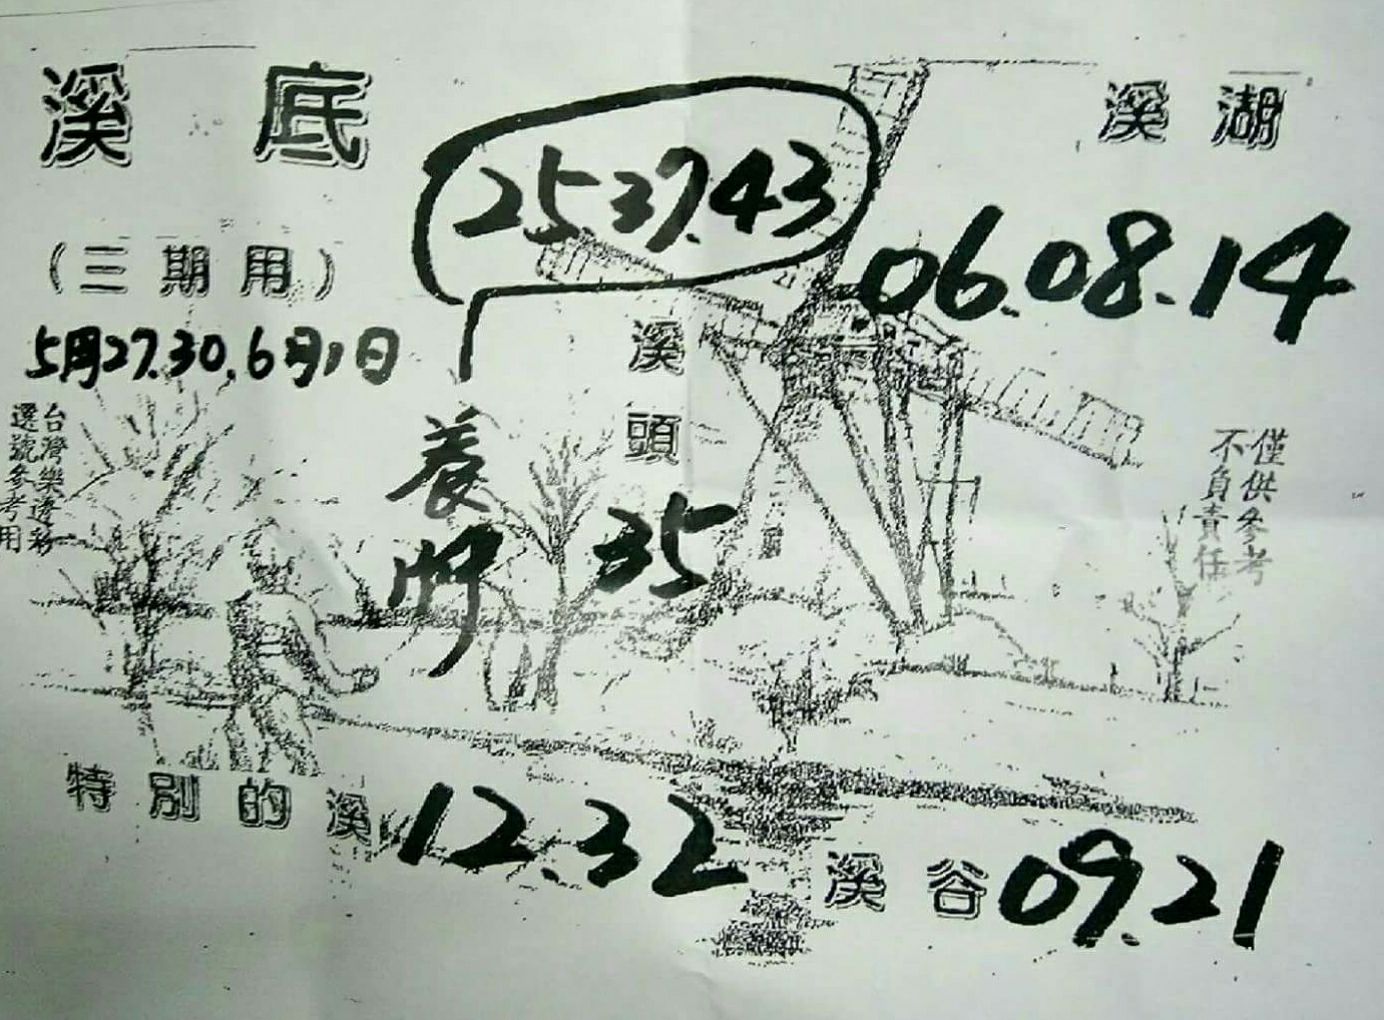 溪底
(三期用)
5月27.30.6月1日
台灣樂透彩
選號參考用
25 37.43
溪湖
06.08.14
溪頭
35
僅供參考
不負責任
特別的溪
12.32
溪谷
09.21